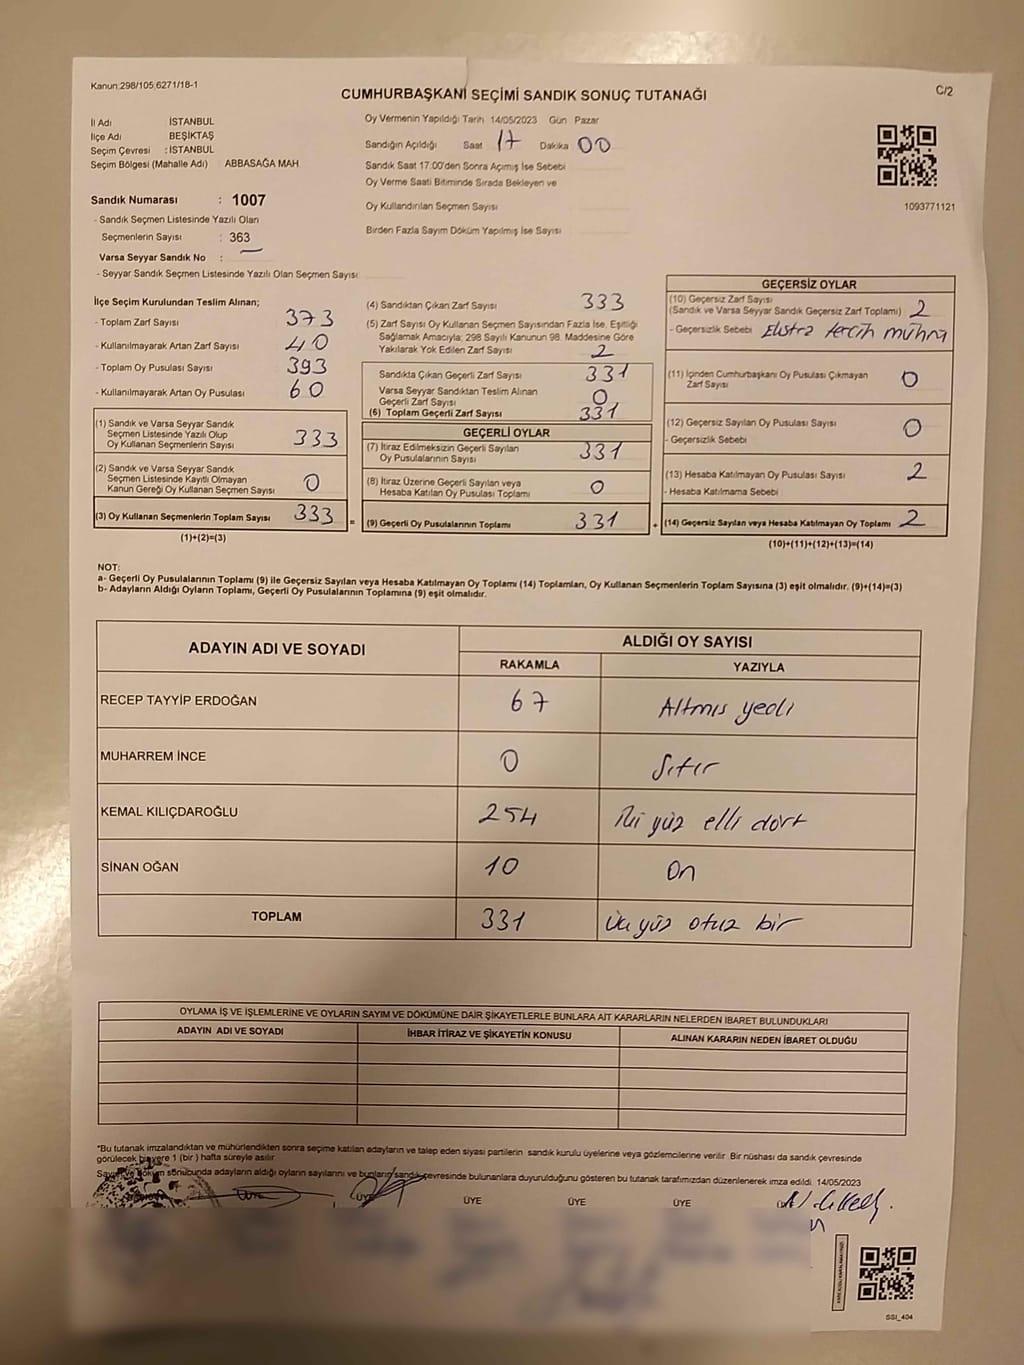 Kanun:298/105,6271/18-1
CUMHURBAŞKANI SEÇİMİ SANDIK SONUÇ TUTANAĞI
C/2
İl Adı İSTANBUL
İlçe Adı BEŞİKTAŞ
Seçim Çevresi : İSTANBUL
Seçim Bölgesi (Mahalle Adı) : ABBASAĞA MAH.
Sandık Numarası : 1007
- Sandık Seçmen Listesinde Yazılı Olan
Seçmenlerin Sayısı : 363
Varsa Seyyar Sandık No : —
- Seyyar Sandık Seçmen Listesinde Yazılı Olan Seçmen Sayısı
Oy Vermenin Yapıldığı Tarih 14/05/2023 Gün Pazar
Sandığın Açıldığı Saat 17 Dakika 00
Sandık Saat 17.00'den Sonra Açımış İse Sebebi
Oy Verme Saati Bitiminde Sırada Bekleyen ve
Oy Kullandırılan Seçmen Sayısı
Birden Fazla Sayım Döküm Yapılmış İse Sayısı
1093771121
İlçe Seçim Kurulundan Teslim Alınan;
- Toplam Zarf Sayısı 373
- Kullanılmayarak Artan Zarf Sayısı 40
- Toplam Oy Pusulası Sayısı 393
- Kullanılmayarak Artan Oy Pusulası 60
(1) Sandık ve Varsa Seyyar Sandık
Seçmen Listesinde Yazılı Olup
Oy Kullanan Seçmenlerin Sayısı 333
(2) Sandık ve Varsa Seyyar Sandık
Seçmen Listesinde Kayıtlı Olmayan
Kanun Gereği Oy Kullanan Seçmen Sayısı 0
(3) Oy Kullanan Seçmenlerin Toplam Sayısı 333 =
(1)+(2)=(3)
(4) Sandıktan Çıkan Zarf Sayısı 333
(5) Zarf Sayısı Oy Kullanan Seçmen Sayısından Fazla İse, Eşitliği
Sağlamak Amacıyla; 298 Sayılı Kanunun 98. Maddesine Göre
Yakılarak Yok Edilen Zarf Sayısı 2
Sandıkta Çıkan Geçerli Zarf Sayısı 331
Varsa Seyyar Sandıktan Teslim Alınan
Geçerli Zarf Sayısı 0
(6) Toplam Geçerli Zarf Sayısı 331
GEÇERLİ OYLAR
(7) İtiraz Edilmeksizin Geçerli Sayılan
Oy Pusulalarının Sayısı 331
(8) İtiraz Üzerine Geçerli Sayılan veya
Hesaba Katılan Oy Pusulası Toplamı 0
(9) Geçerli Oy Pusulalarının Toplamı 331 +
GEÇERSİZ OYLAR
(10) Geçersiz Zarf Sayısı
(Sandık ve Varsa Seyyar Sandık Geçersiz Zarf Toplamı) 2
- Geçersizlik Sebebi Ekstra tercih mühru
(11) İçinden Cumhurbaşkanı Oy Pusulası Çıkmayan
Zarf Sayısı 0
(12) Geçersiz Sayılan Oy Pusulası Sayısı 0
- Geçersizlik Sebebi
(13) Hesaba Katılmayan Oy Pusulası Sayısı 2
- Hesaba Katılmama Sebebi
(14) Geçersiz Sayılan veya Hesaba Katılmayan Oy Toplamı 2
(10)+(11)+(12)+(13)=(14)
NOT:
a- Geçerli Oy Pusulalarının Toplamı (9) ile Geçersiz Sayılan veya Hesaba Katılmayan Oy Toplamı (14) Toplamları, Oy Kullanan Seçmenlerin Toplam Sayısına (3) eşit olmalıdır. (9)+(14)=(3)
b- Adayların Aldığı Oyların Toplamı, Geçerli Oy Pusulalarının Toplamına (9) eşit olmalıdır.
ADAYIN ADI VE SOYADI ALDIĞI OY SAYISI
RAKAMLA YAZIYLA
RECEP TAYYİP ERDOĞAN 67 Altmış yedi
MUHARREM İNCE 0 Sıfır
KEMAL KILIÇDAROĞLU 254 İki yüz elli dört
SİNAN OĞAN 10 On
TOPLAM 331 Üç yüz otuz bir
OYLAMA İŞ VE İŞLEMLERİNE VE OYLARIN SAYIM VE DÖKÜMÜNE DAİR ŞİKAYETLERLE BUNLARA AİT KARARLARIN NELERDEN İBARET BULUNDUKLARI
ADAYIN ADI VE SOYADI İHBAR İTİRAZ VE ŞİKAYETİN KONUSU ALINAN KARARIN NEDEN İBARET OLDUĞU
*Bu tutanak imzalandıktan ve mühürlendikten sonra seçime katılan adayların ve talep eden siyasi partilerin sandık kurulu üyelerine veya gözlemcilerine verilir. Bir nüshası da sandık çevresinde
görülecek bir yere 1 (bir) hafta süreyle asılır.
Sayım ve döküm sonucunda adayların aldığı oyların sayılarını ve bunların sandık çevresinde bulunanlara duyurulduğunu gösteren bu tutanak tarafımızdan düzenlenerek imza edildi. 14/05/2023
ÜYE ÜYE ÜYE ÜYE ÜYE
SSI_404